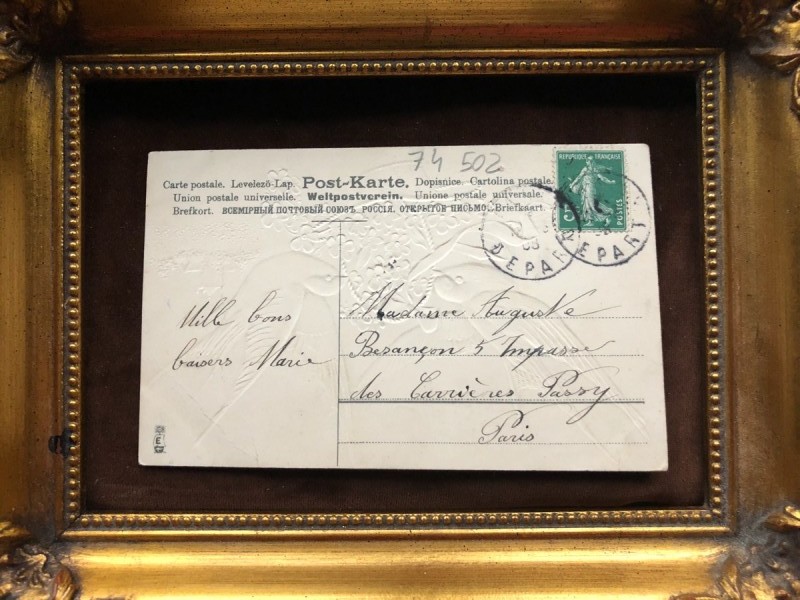 74 502
Carte postale. Levelező-Lap. Post-Karte. Dopisnice. Cartolina postale.
Union postale universelle. Weltpostverein. Unione postale universale.
Brefkort. ВСЕМІРНЫЙ ПОЧТОВЫЙ СОЮЗЪ. РОССІЯ. ОТКРЫТОЕ ПИСЬМО. Briefkaart.
REPUBLIQUE FRANÇAISE
5
POSTES
DEPART
DEPART
Mille bons
baisers Marie
Madame Auguste
Besançon 5 Impasse
des Carrières Passy
Paris
E